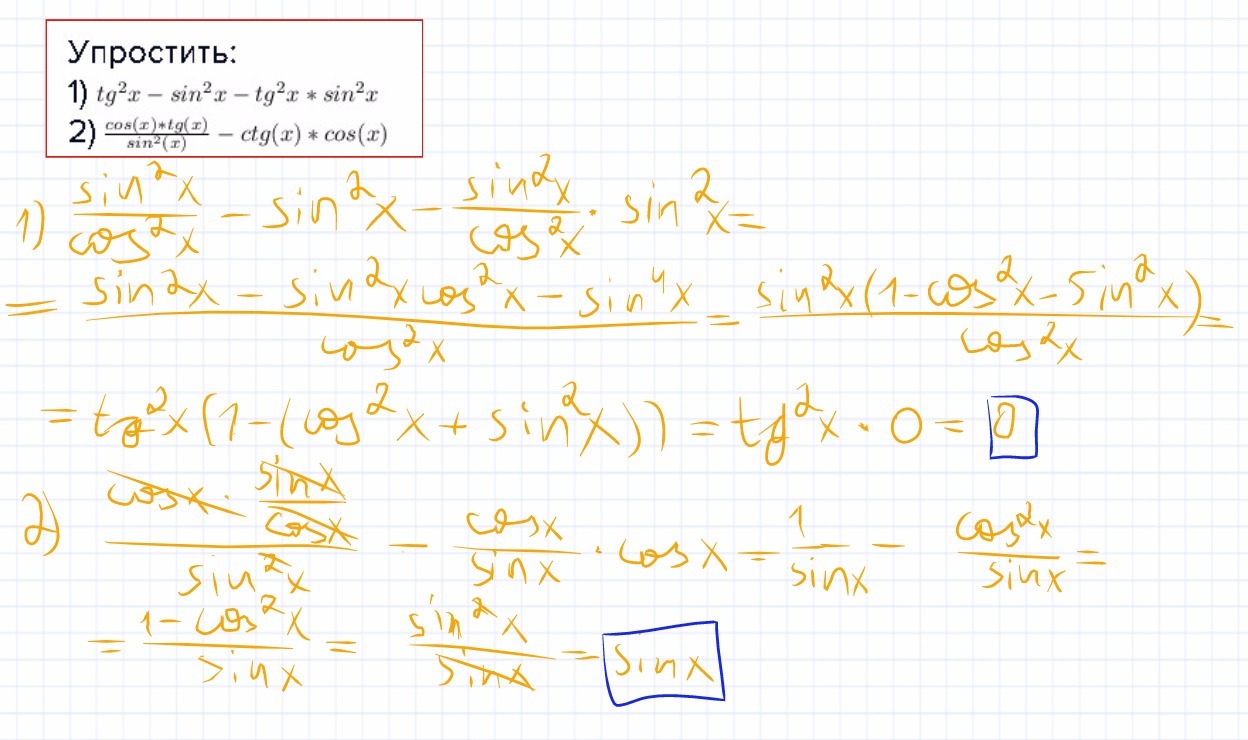 Упростить:
1) tg²x − sin²x − tg²x * sin²x
2) cos(x)*tg(x)/sin²(x) − ctg(x) * cos(x)
1) sin²x/cos²x − sin²x − sin²x/cos²x · sin²x =
= (sin²x − sin²x cos²x − sin⁴x)/cos²x = sin²x(1 − cos²x − sin²x)/cos²x =
= tg²x(1 − (cos²x + sin²x)) = tg²x · 0 = 0
2) (cosx · sinx/cosx)/sin²x − cosx/sinx · cosx = 1/sinx − cos²x/sinx =
= (1 − cos²x)/sinx = sin²x/sinx = sinx